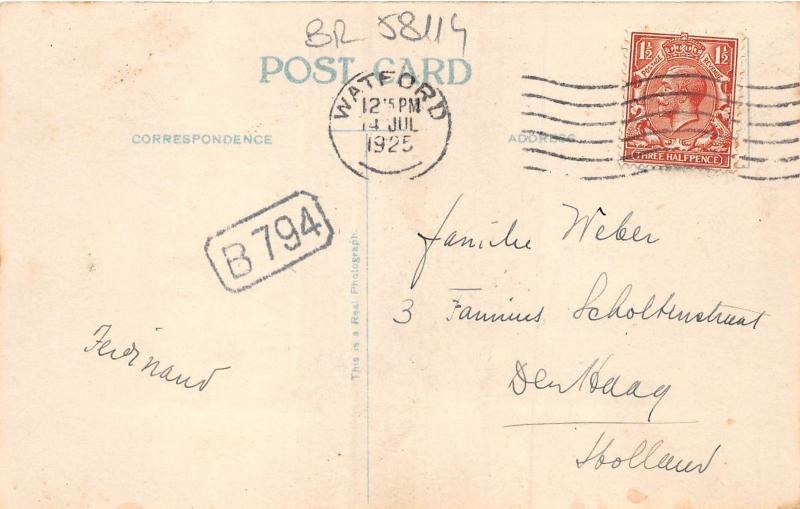 BR 58114
POST CARD
WATFORD
12 15 PM
14 JUL
1925
1½ 1½
POSTAGE REVENUE
THREE HALFPENCE
CORRESPONDENCE
ADDRESS
B 794
This is a Real Photograph.
Ferdinand
Familie Weber
3 Fannius Scholtenstraat
Den Haag
Holland